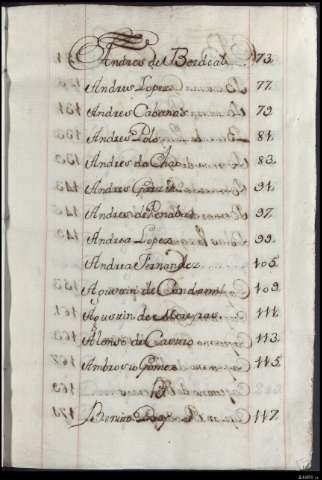 Andres de Bordeal 73.
Andres Lopez 77.
Andres Cabanas 79.
Andres Polo 81.
Andres da Chao 83.
Andres Garcia 91.
Andres de Penabad 97.
Andrea Lopez 99.
Andrea Fernandez 105.
Agustin de 109.
Agustin de 111.
Alonso de Castro 113.
Ambrosio Gomez 115.
B
Benito 117.